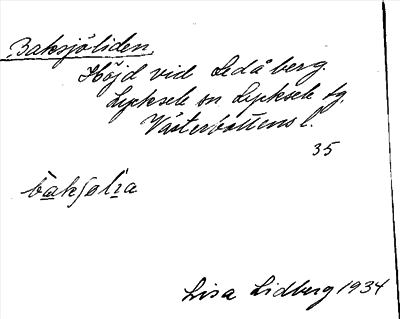 Baksjöliden,
Höjd vid Sedåberg.
Lycksele sn Lycksele lg.
Västerbottens l.
35
Lisa Lidberg 1934